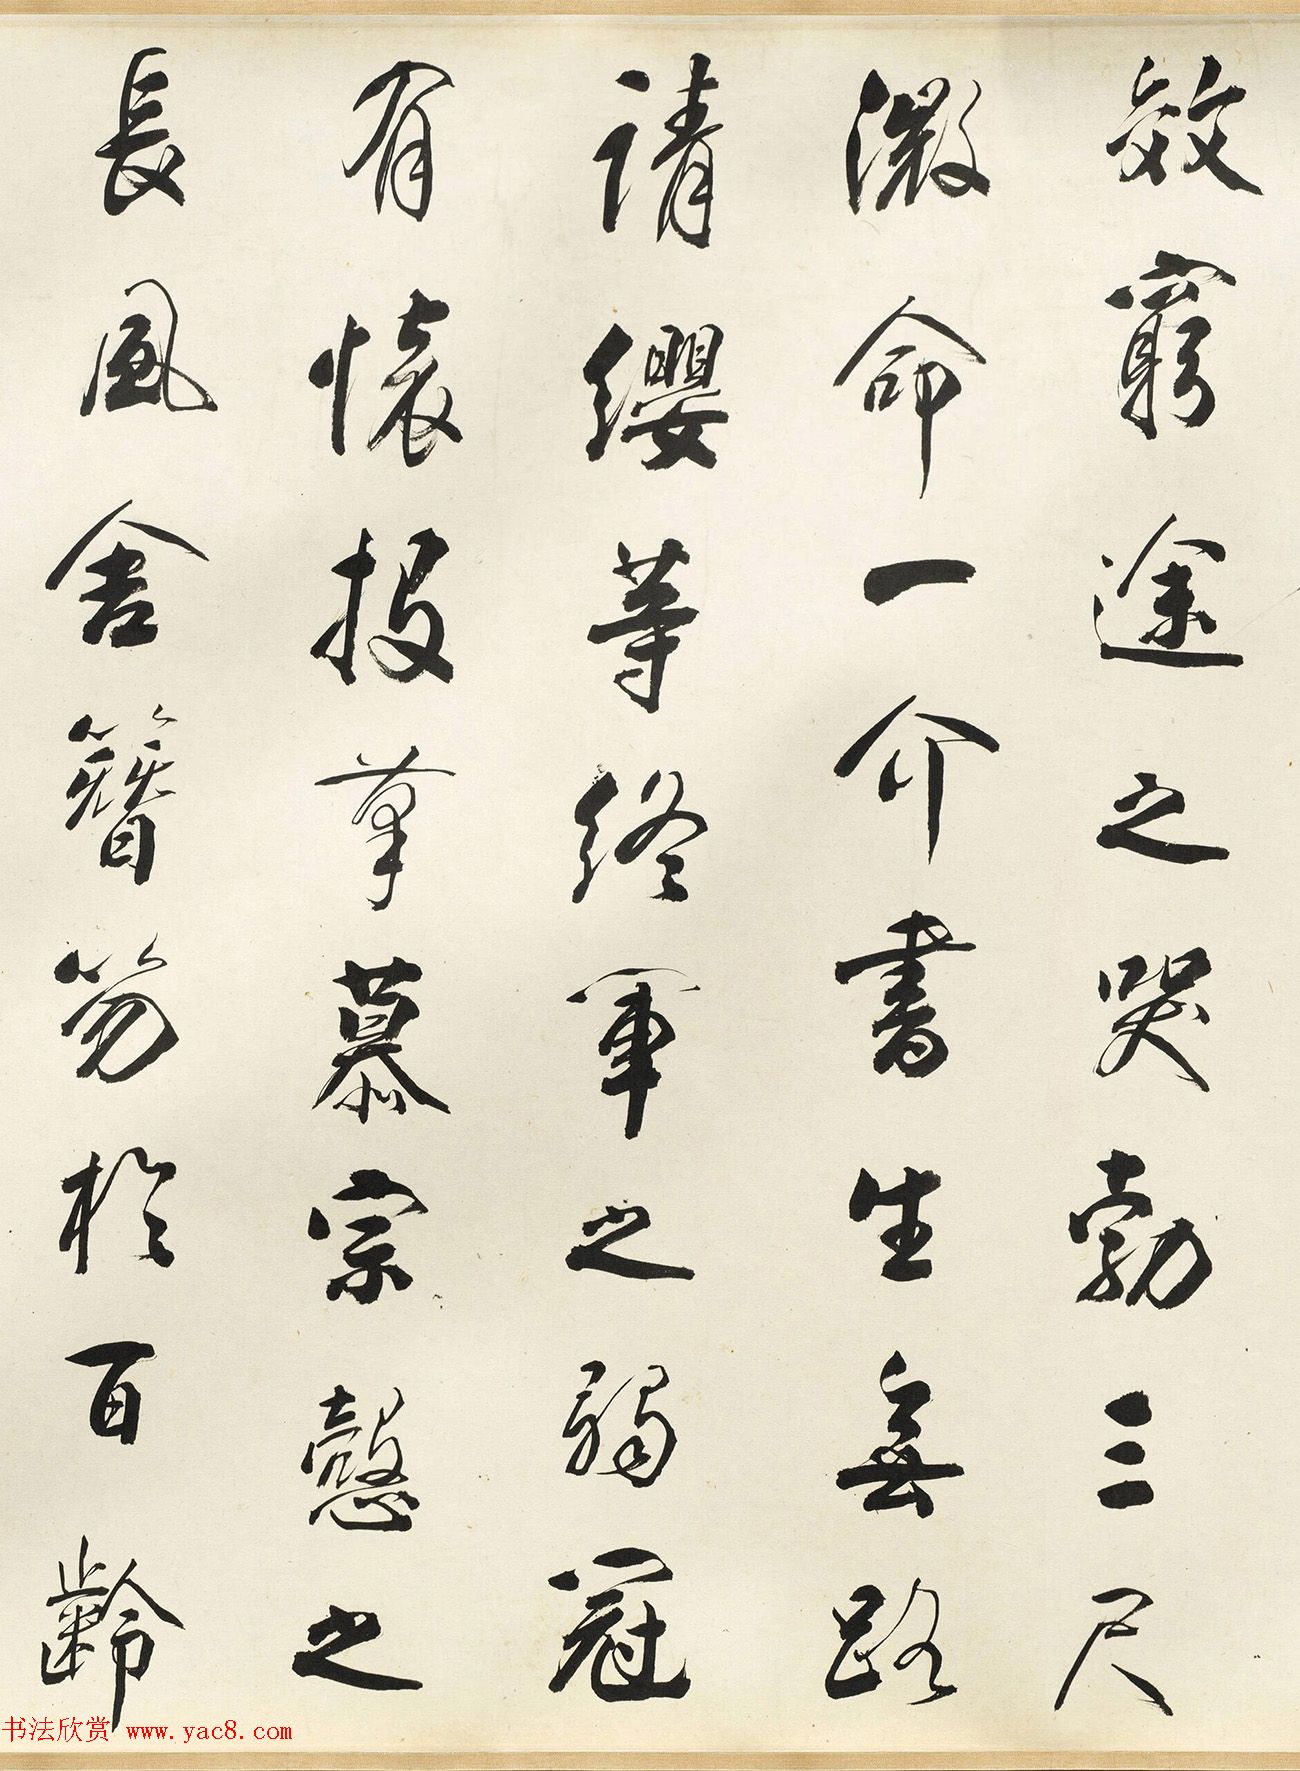 效窮途之哭勃三尺
微命一介書生無路
請纓等終軍之弱冠
有懷投筆慕宗慤之
長風舍簪笏於百齡
书法欣赏 www.yac8.com